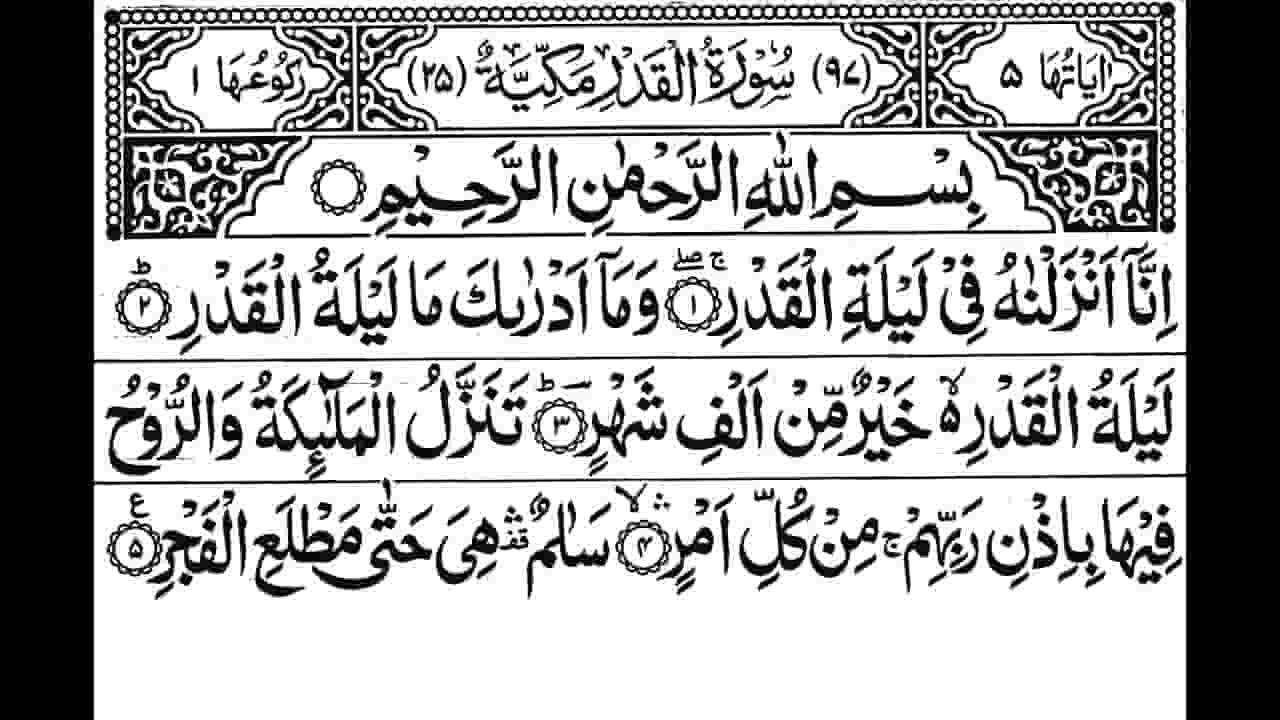 اٰيَاتُهَا ٥ (٩٧) سُوْرَةُ الْقَدْرِ مَكِّيَّةٌ (٢٥) رُكُوْعُهَا ١
بِسْمِ اللّٰهِ الرَّحْمٰنِ الرَّحِيْمِ ۝
اِنَّآ اَنْزَلْنٰهُ فِيْ لَيْلَةِ الْقَدْرِ ۝١ۚۖ وَمَآ اَدْرٰىكَ مَا لَيْلَةُ الْقَدْرِ ۝٢ؕ
لَيْلَةُ الْقَدْرِ ۙ۬ خَيْرٌ مِّنْ اَلْفِ شَهْرٍ ۝٣ؕ تَنَزَّلُ الْمَلٰٓئِكَةُ وَالرُّوْحُ
فِيْهَا بِاِذْنِ رَبِّهِمْ ۚ مِنْ كُلِّ اَمْرٍ ۝٤ۙۛ سَلٰمٌ ۛ۫ هِيَ حَتّٰى مَطْلَعِ الْفَجْرِ ۝٥ع